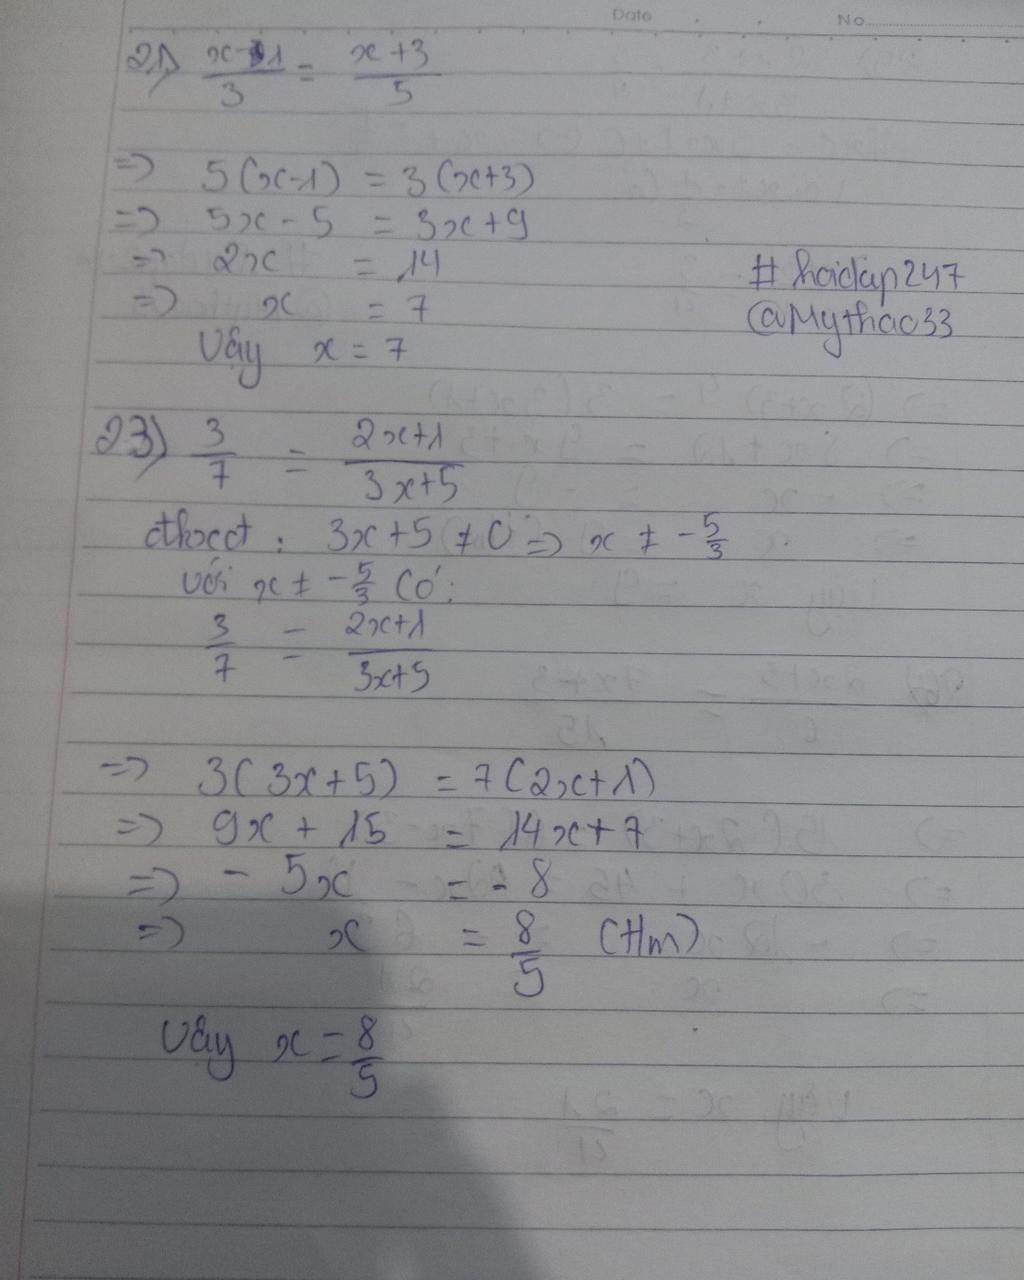 Date . . No
21) x-1/3 = x+3/5
=> 5(x-1) = 3(x+3)
=> 5x - 5 = 3x+9
=> 2x = 14
=> x = 7
Vậy x = 7
#hoidap247
@Mythao33
23) 3/7 = 2x+1/3x+5
đkxđ : 3x+5 ≠ 0 => x ≠ -5/3
Với x ≠ -5/3 Có:
3/7 = 2x+1/3x+5
=> 3(3x+5) = 7(2x+1)
=> 9x + 15 = 14x+7
=> - 5x = - 8
=> x = 8/5 (tm)
Vậy x = 8/5